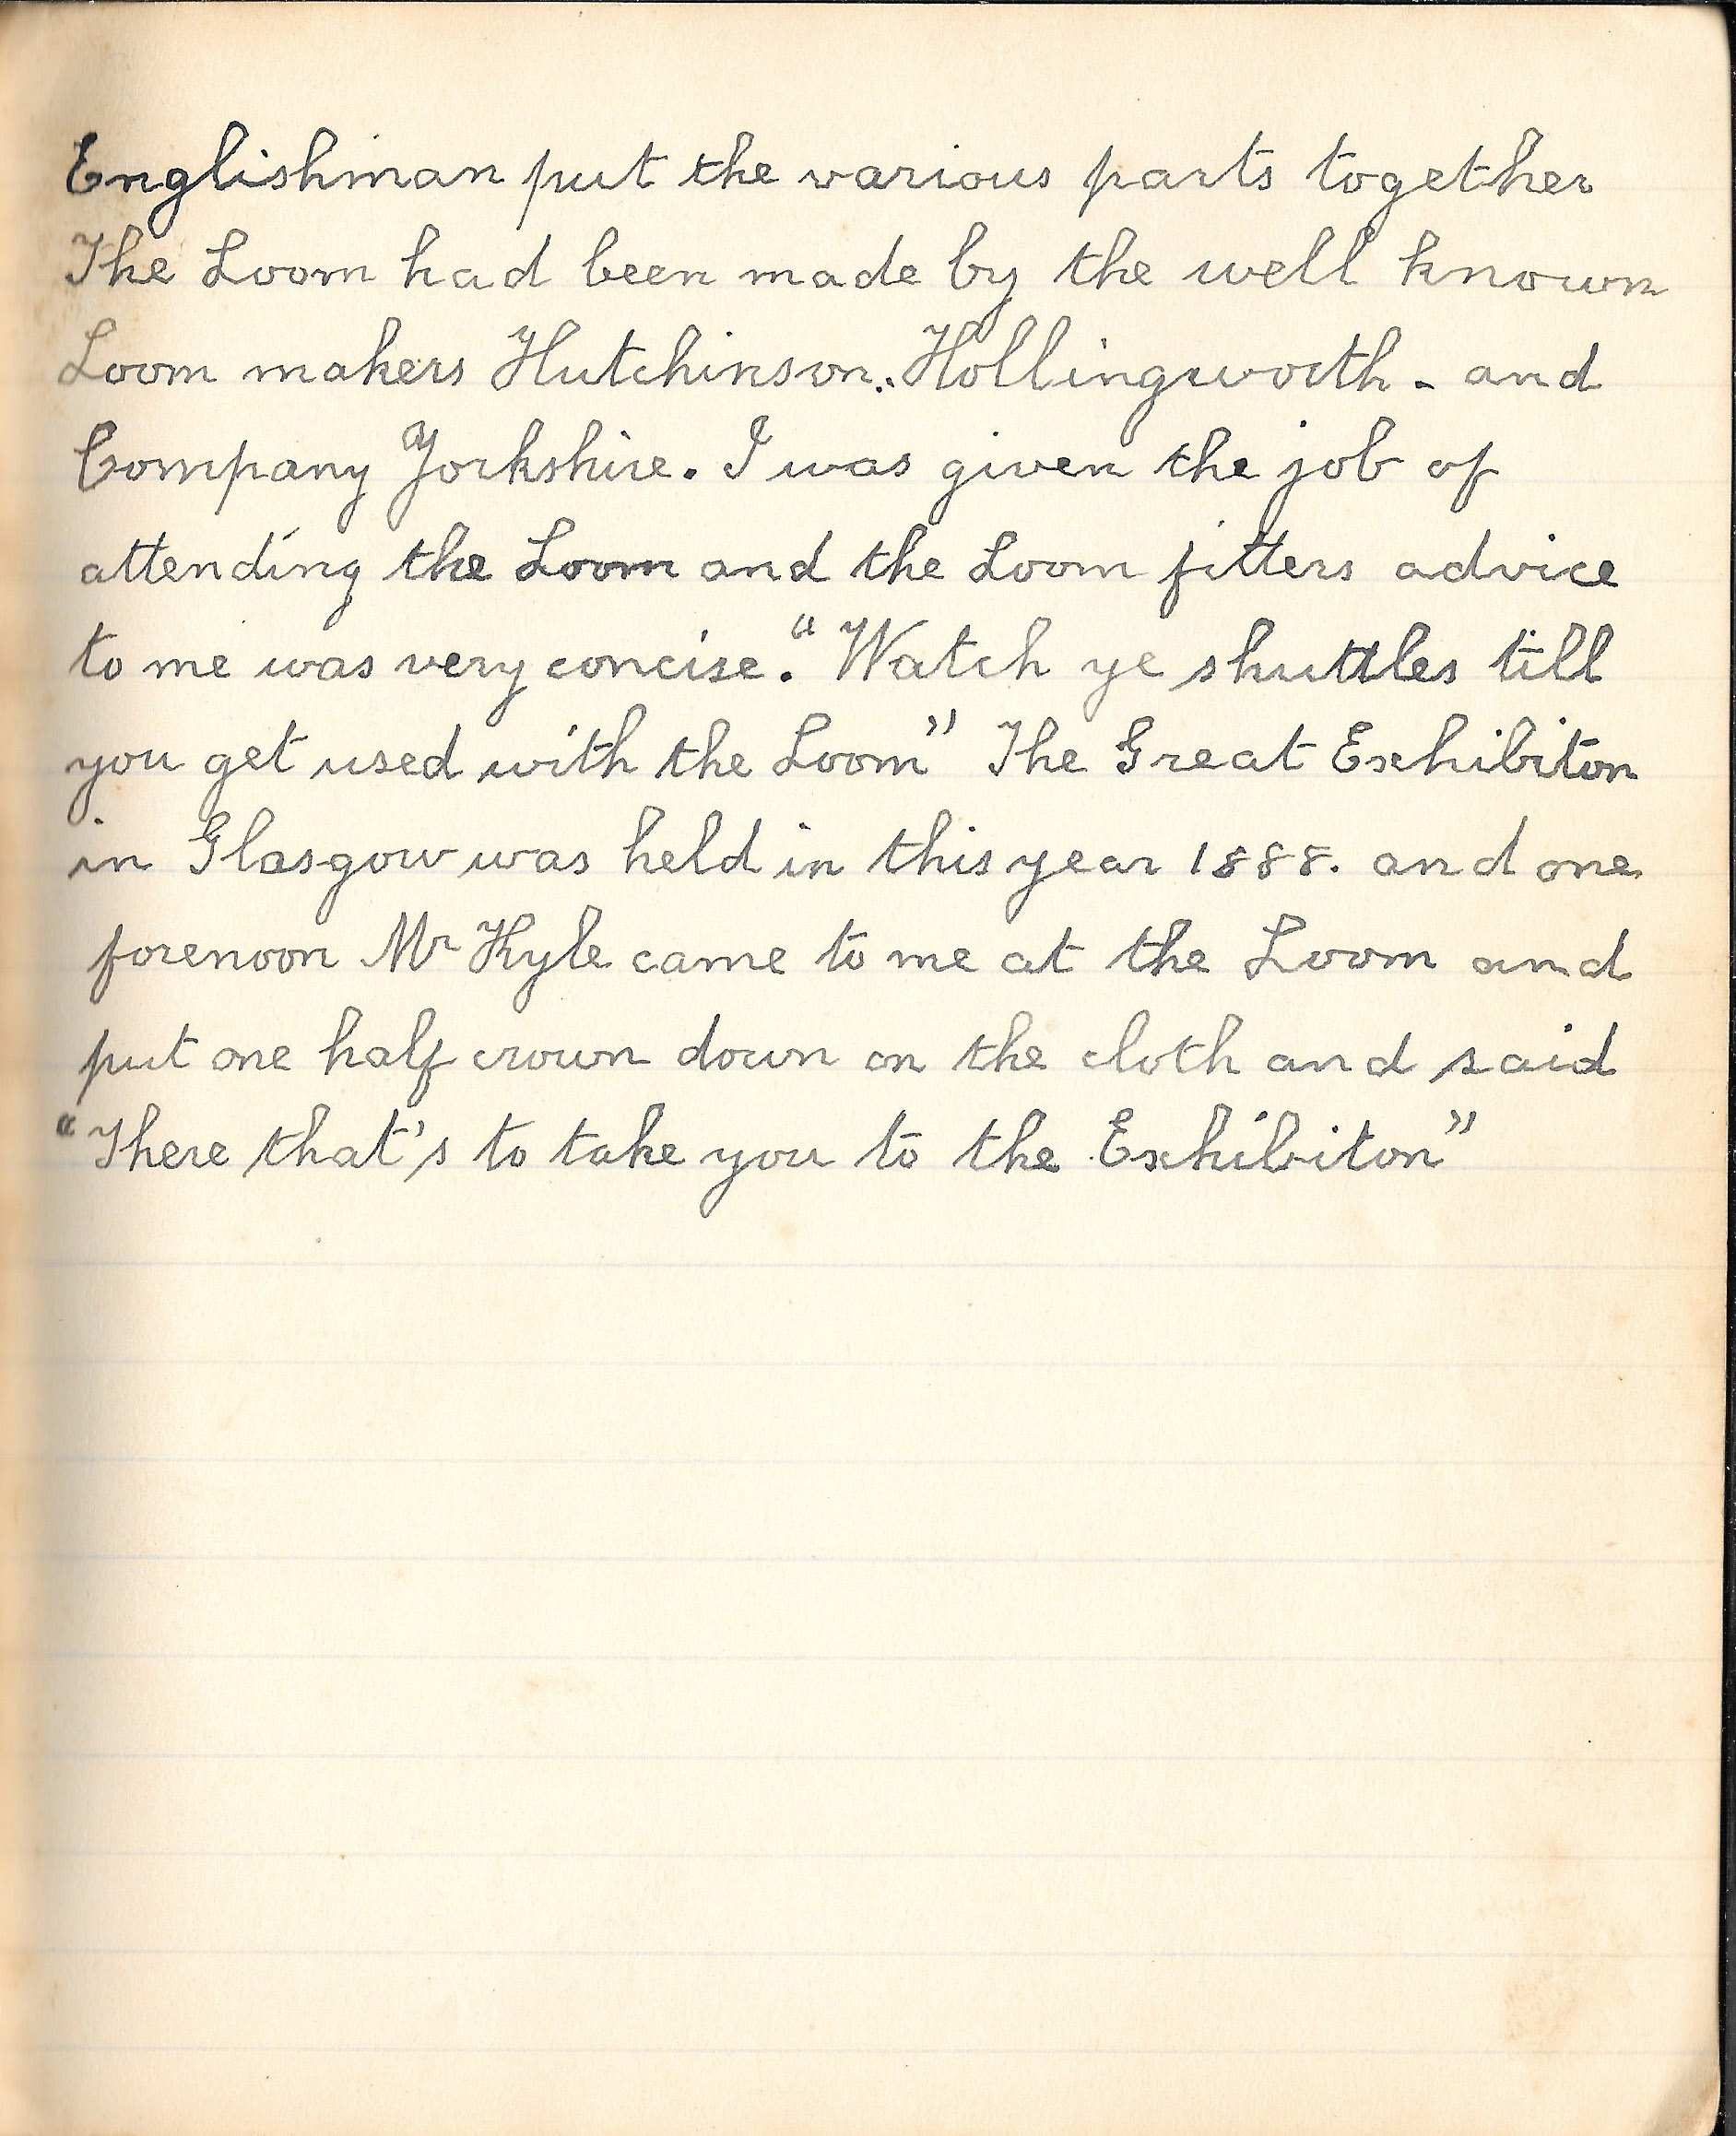 Englishman put the various parts together
The Loom had been made by the well known
Loom makers Hutchinson. Hollingworth - and
Company Yorkshire. I was given the job of
attending the Loom and the Loom fitters advice
to me was very concise. "Watch ye shuttles till
you get used with the Loom" The Great Exhibiton
in Glasgow was held in this year 1888. and one
forenoon Mr Kyle came to me at the Loom and
put one half crown down on the cloth and said
"There that's to take you to the Exhibiton"